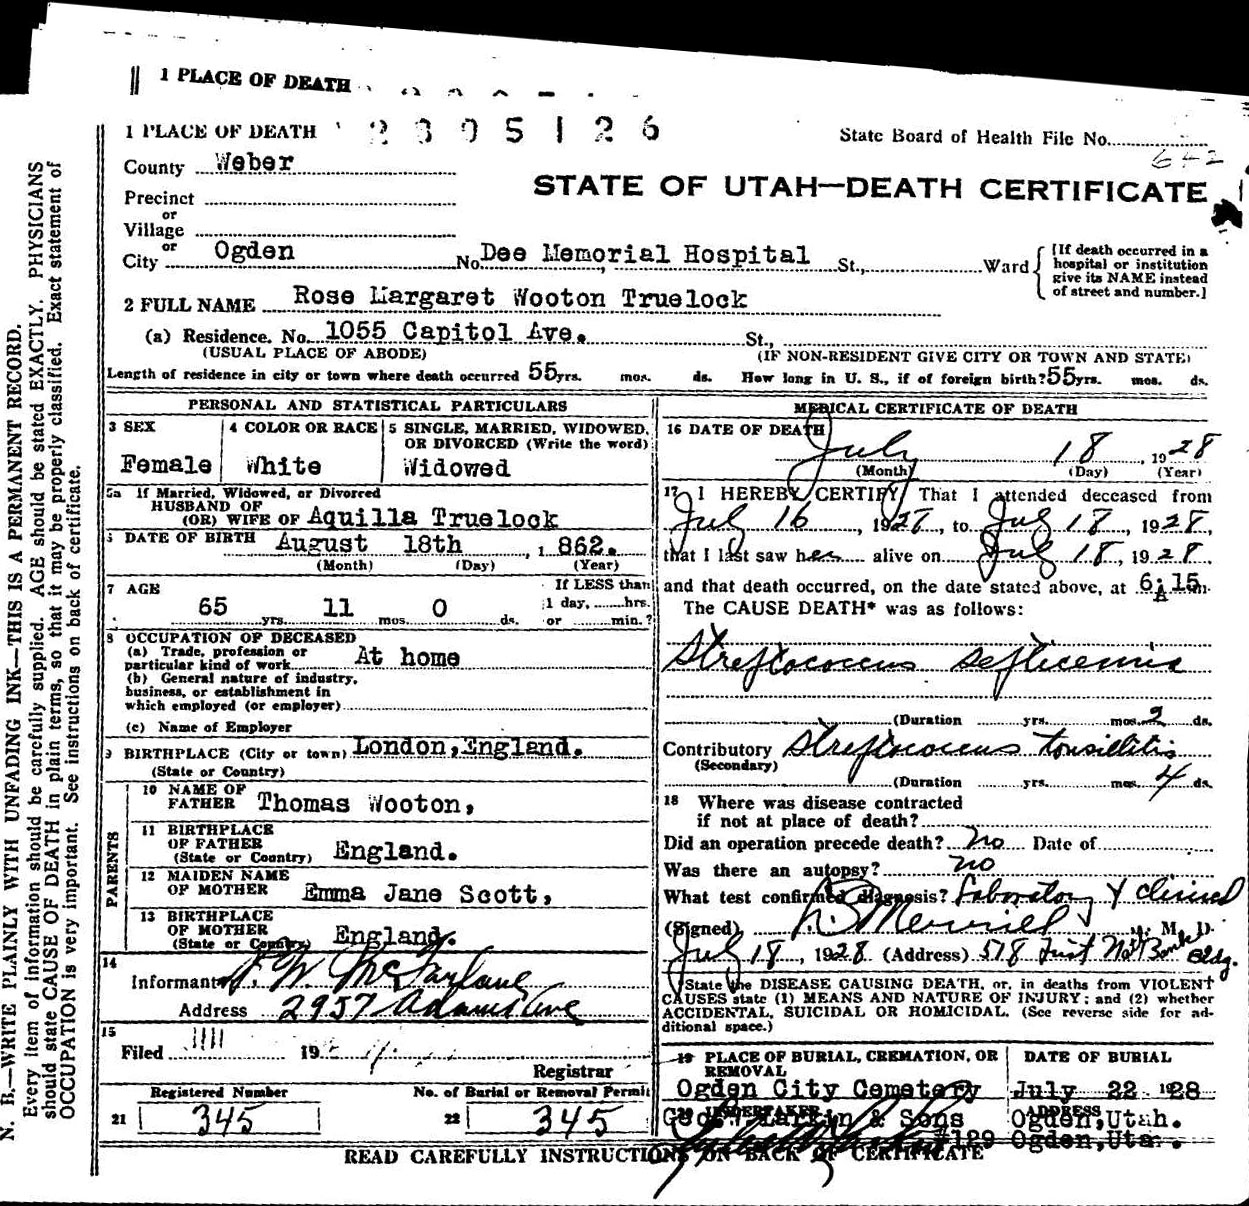 1 PLACE OF DEATH
1 PLACE OF DEATH 2805126
State Board of Health File No. 642
County Weber
STATE OF UTAH—DEATH CERTIFICATE
Precinct
or
Village
or
City Ogden No. Dee Memorial Hospital St., Ward
[If death occurred in a hospital or institution give its NAME instead of street and number.]
2 FULL NAME Rose Margaret Wooton Truelock
(a) Residence. No. 1055 Capitol Ave. St.,
(USUAL PLACE OF ABODE) (IF NON-RESIDENT GIVE CITY OR TOWN AND STATE)
Length of residence in city or town where death occurred 55 yrs. mos. ds. How long in U. S., if of foreign birth? 55 yrs. mos. ds.
PERSONAL AND STATISTICAL PARTICULARS
3 SEX
Female
4 COLOR OR RACE
White
5 SINGLE, MARRIED, WIDOWED,
OR DIVORCED (Write the word)
Widowed
5a If Married, Widowed, or Divorced
HUSBAND OF
(OR) WIFE OF Aquilla Truelock
DATE OF BIRTH August 18th, 1862.
(Month) (Day) (Year)
7 AGE
65 yrs. 11 mos. 0 ds.
If LESS than
1 day, hrs.
or min.?
8 OCCUPATION OF DECEASED
(a) Trade, profession or
particular kind of work At home
(b) General nature of industry,
business, or establishment in
which employed (or employer)
(c) Name of Employer
9 BIRTHPLACE (City or town) London, England.
(State or Country)
PARENTS
10 NAME OF
FATHER Thomas Wooton,
11 BIRTHPLACE
OF FATHER
(State or Country) England.
12 MAIDEN NAME
OF MOTHER Emma Jane Scott,
13 BIRTHPLACE
OF MOTHER
(State or Country) England.
14
Informant W. McFarlane
Address 2957 Adams Ave
15
Filed 19
Registrar
Registered Number
21 345
No. of Burial or Removal Permit
22 345
MEDICAL CERTIFICATE OF DEATH
16 DATE OF DEATH
July 18, 1928
(Month) (Day) (Year)
17 I HEREBY CERTIFY, That I attended deceased from
July 16, 1928, to July 18, 1928,
that I last saw her alive on July 18, 1928,
and that death occurred, on the date stated above, at 6:15 A m.
The CAUSE DEATH* was as follows:
Streptococcus septicemia
(Duration yrs. mos. 2 ds.
Contributory Streptococcus tonsillitis
(Secondary)
(Duration yrs. mos. 4 ds.
18 Where was disease contracted
if not at place of death?
Did an operation precede death? no Date of
Was there an autopsy? no
What test confirmed diagnosis? Laboratory & clinical
(Signed) Merrill, M. D.
July 18, 1928 (Address) 578 First Nat Bank Bldg.
State the DISEASE CAUSING DEATH, or, in deaths from VIOLENT
CAUSES state (1) MEANS AND NATURE OF INJURY; and (2) whether
ACCIDENTAL, SUICIDAL OR HOMICIDAL. (See reverse side for ad-
ditional space.)
19 PLACE OF BURIAL, CREMATION, OR
REMOVAL
Ogden City Cemetery
DATE OF BURIAL
July 22 1928
20 UNDERTAKER
Larkin & Sons
#129
ADDRESS
Ogden, Utah.
Ogden, Utah.
READ CAREFULLY INSTRUCTIONS ON BACK OF CERTIFICATE
N. B.—WRITE PLAINLY WITH UNFADING INK—THIS IS A PERMANENT RECORD.
Every item of information should be carefully supplied. AGE should be stated EXACTLY. PHYSICIANS
should state CAUSE OF DEATH in plain terms, so that it may be properly classified. Exact statement of
OCCUPATION is very important. See instructions on back of certificate.